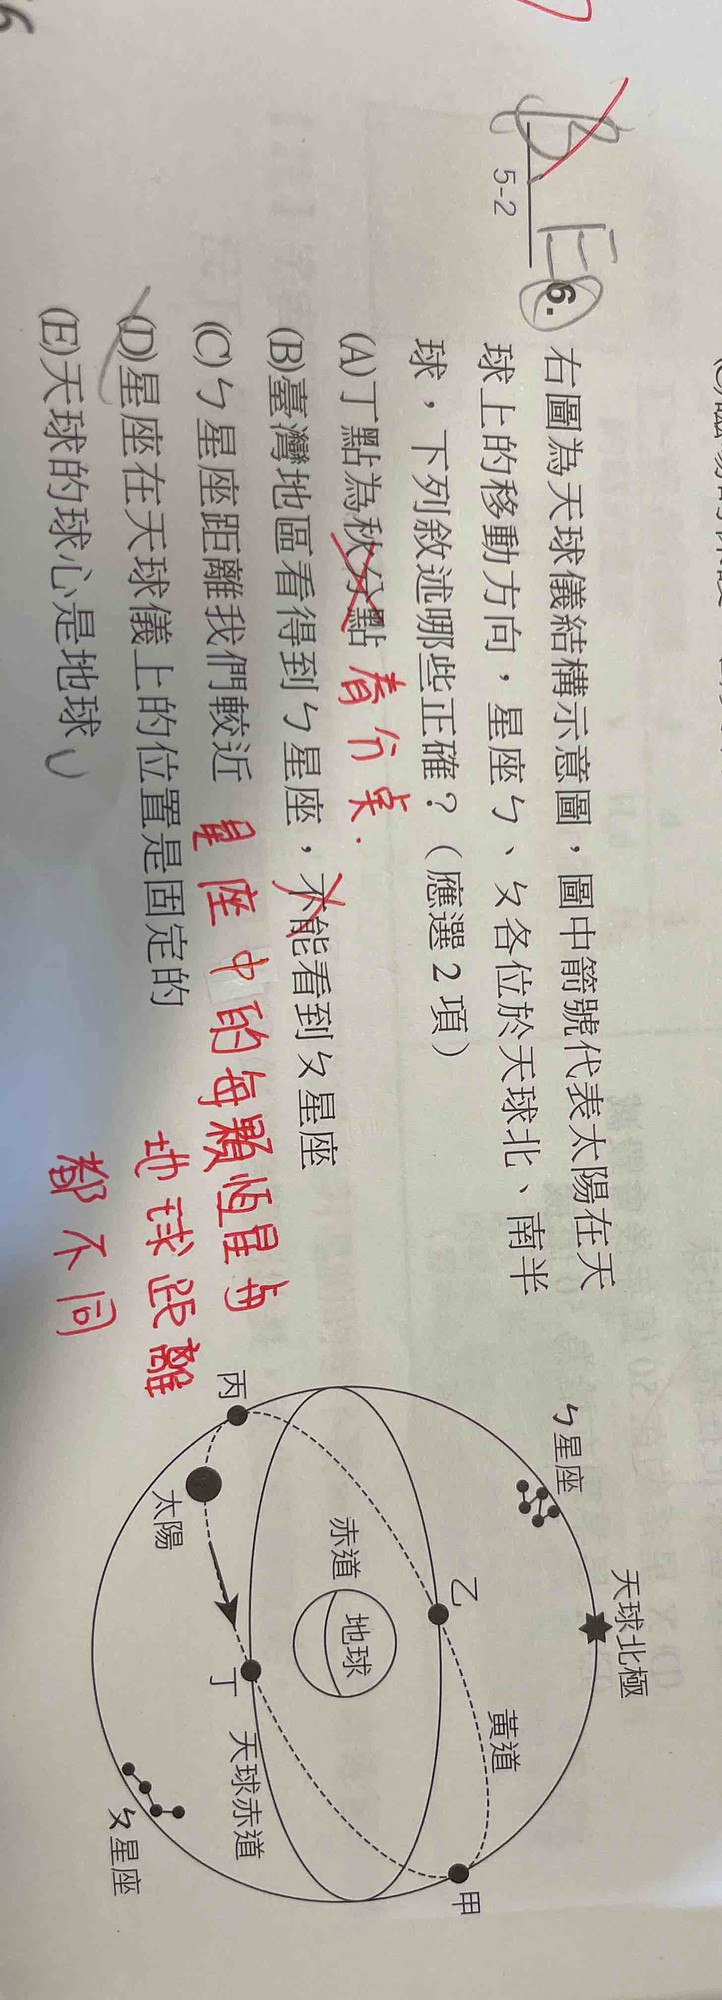 B E
5-2
6. 右圖為天球儀結構示意圖，圖中箭號代表太陽在天
球上的移動方向，星座ㄅ、ㄆ各位於天球北、南半
球，下列敘述哪些正確？（應選2項）
(A)丁點為秋分點 春分点.
(B)臺灣地區看得到ㄅ星座，不能看到ㄆ星座
(C)ㄅ星座距離我們較近 星座中的每顆恆星与
地球距離
都不同
(D)星座在天球儀上的位置是固定的
(E)天球的球心是地球
ㄅ星座
天球北極
丙
太陽
赤道
地球
乙
黃道
丁
天球赤道
甲
ㄆ星座